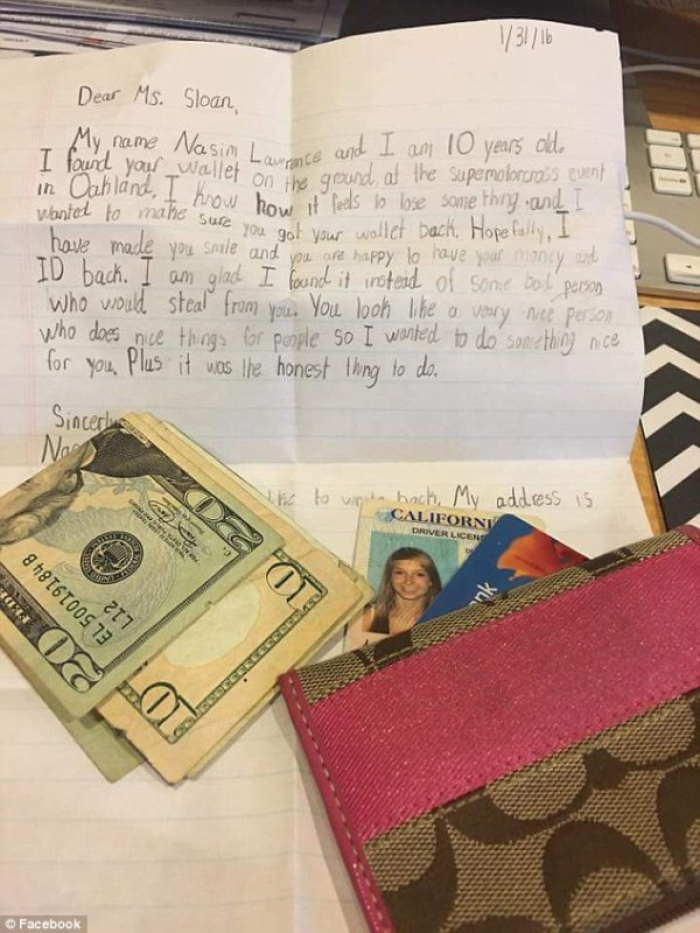 1/31/16
Dear Ms. Sloan,
My name Nasim Lawrence and I am 10 years old.
I found your wallet on the ground at the supermotorcross event
in Oakland. I know how it feels to lose something and I
wanted to make sure you got your wallet back. Hopefully, I
have made you smile and you are happy to have your money and
ID back. I am glad I found it instead of some bad person
who would steal from you. You look like a very nice person
who does nice things for people so I wanted to do something nice
for you. Plus it was the honest thing to do.
Sincerly
Na
like to write back. My address is
20
EL50019184B
L12
20
10
10
CALIFORNI
DRIVER LICEN
nk
© Facebook